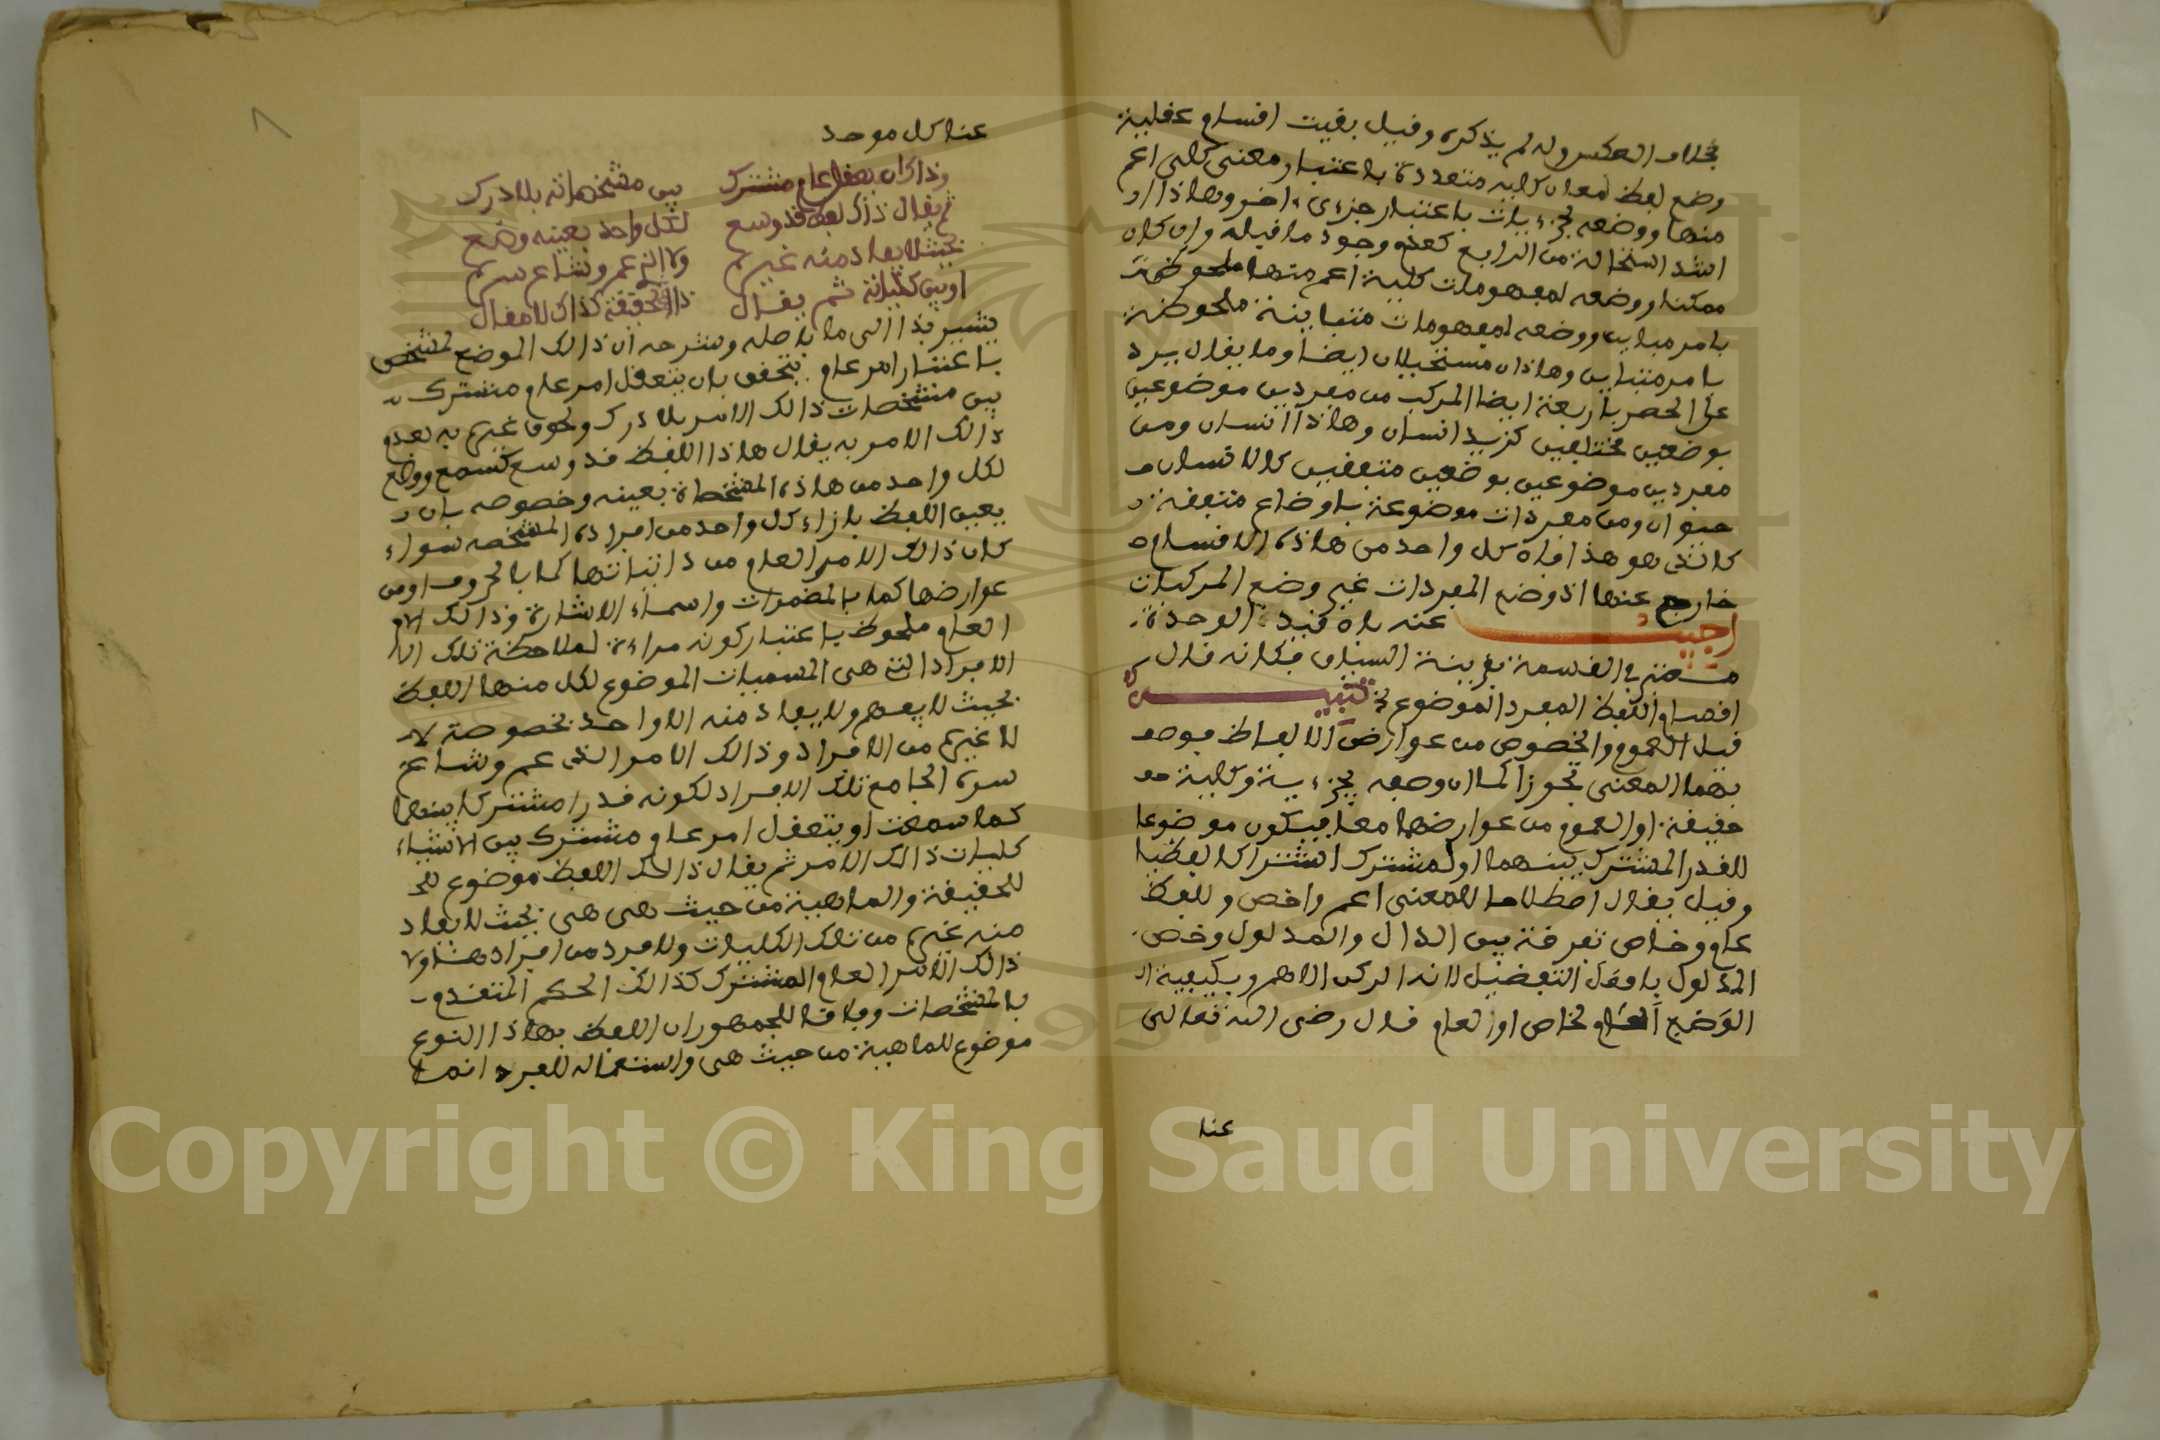 بخلاف العكس ولم يذكره وقيل بقيت اقسام عقلية
وضع لفظ لمعان كلية متعددة باعتبار معنى كلى اعم
منها ووضعه لجزءيات باعتبار جزءى ءاخر وهاذا
اشد استحالة من الرابع كعدم وجود ما قبله وان كان
ممكنا ووضعه لمفهومات كلية اعم منها ملحوظة
بامر مباين ووضعه لمفهومات متباينة ملحوظة
بامر متباين وهاذان مستحيلان ايضا وما يقال يرد
على الحصر باربعة ايضا المركب من مفردين موضوعين
بوضعين مختلفين كزيد انسان وهاذا انسان ومن
مفردين موضوعين بوضعين متفقين كالانسان
حيوان ومن مفردات موضوعة باوضاع متفقة
كانت هو هذا فان كل واحد من هاذه الاقسام
خارج عنها اذ وضع المفردات غير وضع المركبات
اجيب عنه بان قيد الوحدة
معتبر في القسمة بقرينة السياق فكانه قال
اقسام اللفظ المفرد الموضوع تنبيه
قيل العموم والخصوص من عوارض الالفاظ فوصف
بهما المعنى تجوزا كما ان وصفه بجزءية وكلية
حقيقة او العموم من عوارضهما معا فيكون موضوعا
للقدر المشترك بينهما او لمشترك اشتراكا لفظيا
وقيل يقال اصطلاحا للمعنى اعم واخص وللفظ
عام وخاص تفرقة بين الدال والمدلول وخص
المدلول بافعل التفضيل لانه الركن الاهم وبكيفية
الوضع العام لخاص او لعام قال رضى الله تعالى
عنا
عنا كل موحد
وذا كان يعقل عام مشترك بين مشخصاته بلا درك
ثم يقال ذاك لفظ قد وسع لكل واحد بعينه وضع
بحيث لا يفاد منه غير ولا الذ عم وشاع سر
او بين كليات ثم يقال ذا الحقيقة كذاك لا مقال
يشير بذا الى ما ياصله وشرحه ان ذالك الموضع لمشخص
باعتبار امر عام يتحقق بان يتعقل امر عام مشترك
بين مشخصات ذالك الامر بلا درك ولحوق غيره به بعدم
ذالك الامر به يقال هاذا اللفظ قد وسع كسمع ووضع
لكل واحد من هاذه المشخصات بعينه وخصوصه بان
يعين اللفظ بازاء كل واحد من افراده المشخصه سواء
كان ذالك الامر العام من ذاتياتها كما بالحروف او من
عوارضها كما بالمضمرات واسماء الاشارة وذالك
العام ملحوظ باعتبار كونه مراءة لملاحظة تلك
الافراد التي هى المسميات الموضوع لكل منها اللفظ
بحيث لا يفهم ولا يفاد منه الا واحد بخصوصه
لا غيره من الافراد وذالك الامر الذى عم وشاع
سره الجامع تلك الافراد لكونه قدرا مشتركا بينها
كما سمعت او يتعقل امر عام مشترك بين الاشياء
كليات ذالك الامر ثم يقال ذالك اللفظ موضوع
للحقيقة والماهية من حيث هى هى بحيث لا يفاد
منه غيره من تلك الكليات ولا فرد من افراد
ذالك الامر العام المشترك كذالك الحكم المتقدم
بالمشخصات وفاقا للجمهور ان اللفظ بهاذا النوع
موضوع للماهية من حيث هى واستعماله للفرد انما
Copyright © King Saud University